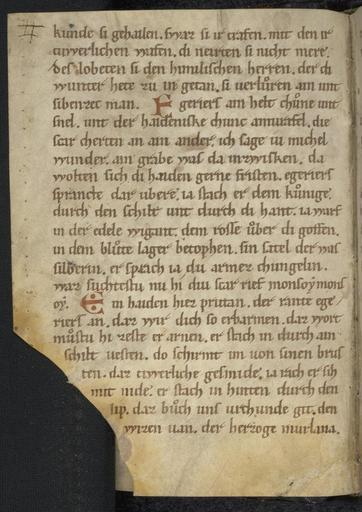 kunde si gehailen. swaz si ir trafen. mit den ir
tiwerlichen wafen. di nerten si nicht mere.
des lobeten si den himilischen herren. der di
wunter hete zu in getan. si verlůren am unt
sibenzec man. Egeriers am helt chůne unt
snel. unt der haideniske chunc amurafel. die
zwene cherten an ain ander. ich sage iu michel
wunder. am grabe was da inzwisken. da
wolten sich di haiden gerne fristen. egeriers
sprancte dar ubere. ia stach er dem kůnige.
durch den schilt unt durch di hant. ia warf
in der edele wigant. dem rosse uͤber di goffen.
in dem blůte lager betophen. sin satel der was
silberin. er sprach ia du armer chungelin.
waz suchtestu nu hi diu scar rief monsoy mons
oy. Ein haiden hiez prutan. der rante ege
riers an. daz wir dich so erbarmen. daz wort
můstu hi zeste er arnen. er stach in durch ain
schilt uesten. do schirmt im uon sinen brus
ten. daz tiwerliche gesmide. ia rach er sih
mit nide. er stach in hinten durch den
lip. daz bůch uns urchunde git. den
uizen uan. der herzoge murlana.